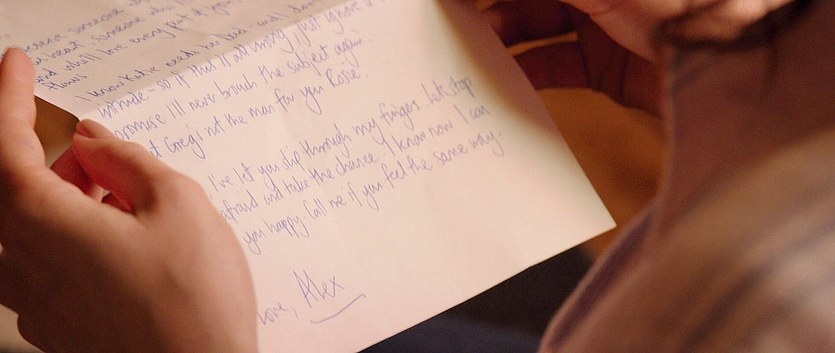 someone
heart someone
and who'll love every part of you
flaws
I know Katie needs her Dad and I don't
intrude - so if this is all wrong, just
promise I'll never broach the subject again.
Greg's not the man for you Rosie.
I've let you slip through my fingers. Let's stop
afraid and take the chance. I know now I can
you happy. Call me if you feel the same way.
Love, Alex